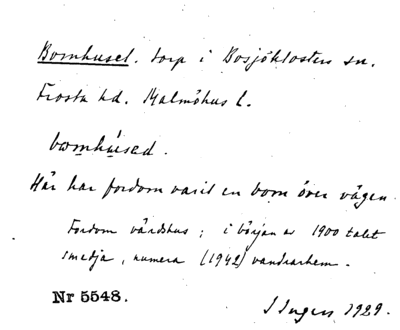 Bomhuset. torp i Bosjöklosters sn.
Frosta hd. Malmöhus l.
bomhúsed.
Här har fordom varit en bom över vägen.
Fordom värdshus; i början av 1900 talet
smedja, numera (1942) vandrarhem.
Nr 5548.
Ingers 1929.